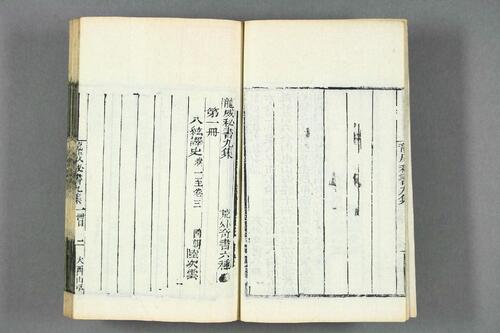 龍威秘書九集
龍威秘書九集
荒外奇書六種
第一冊
八紘譯史 卷一至卷三
陸次雲
龍威秘書九集 一冊
二
大酉山房